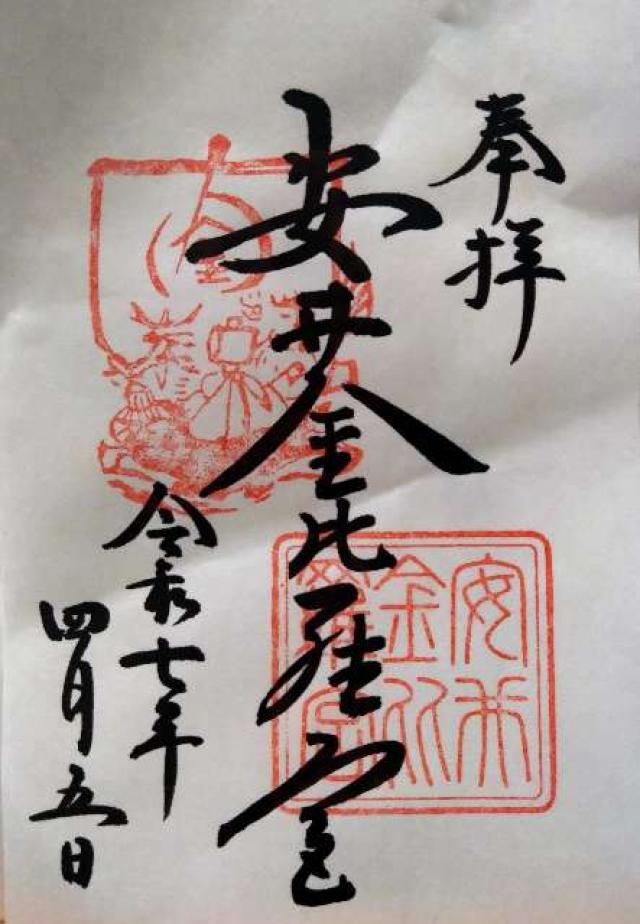 奉拝
安井金比羅宮
令和七年
四月五日
安井
金比
羅宮